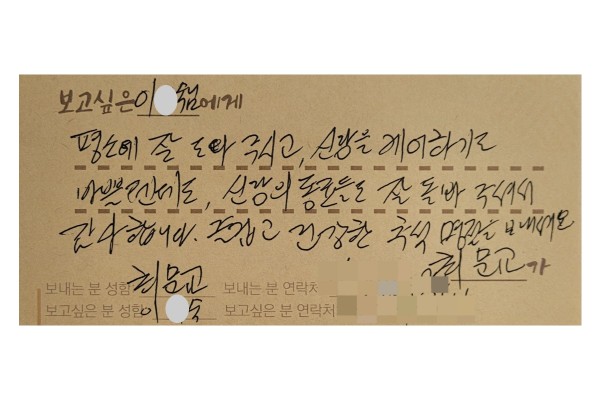 보고싶은 이 님에게
평소에 잘 도와 주시고, 신앙을 케어하기도
바쁜전에도, 신앙의 동료들도 잘 돌봐 주셔서
감사합니다. 즐겁고 건강한 추석 명절을 보내세요
최문고가
보내는 분 성함 최문고 보내는 분 연락처
보고싶은 분 성함 이 숙 보고싶은 분 연락처